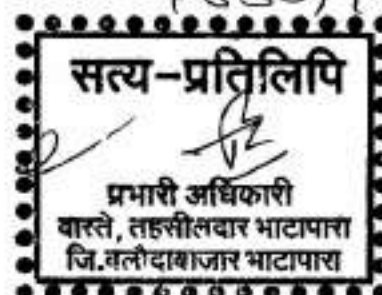 सत्य-प्रतिलिपि
प्रभारी अधिकारी
वास्ते, तहसीलदार भाटापारा
जि.बलौदाबाजार भाटापारा